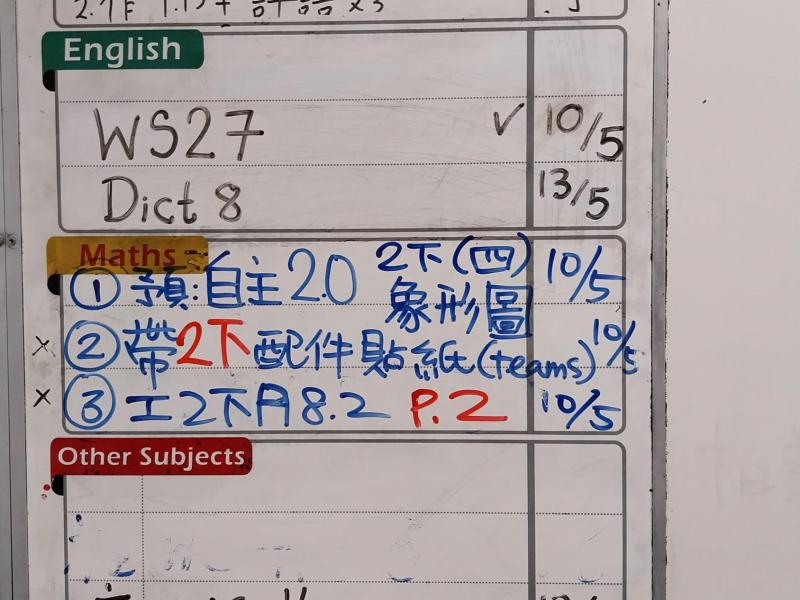 English
WS27 ✓ 10/5
Dict 8 13/5
Maths
① 預:自主2.0 2下(四) 10/5
象形圖
× ② 帶2下配件貼紙(teams) 10/5
× ③ 工2下A8.2 P.2 10/5
Other Subjects